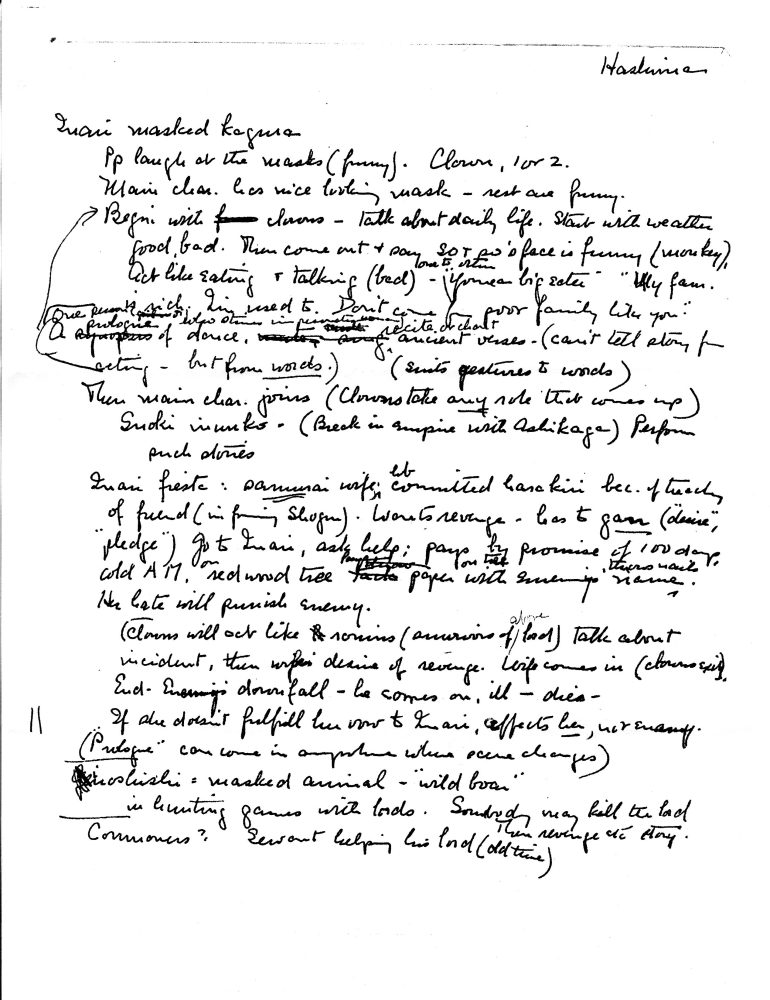 Hashima
Inari masked kagura
Pp laugh at the masks (funny). Clown, 1 or 2.
Main char. has nice looking mask – rest are funny.
Begin with clowns – talk about daily life. Start with weather
good, bad. Then come out + say so + so's face is funny (monkey),
Act like eating + talking (bad) – one to other "You're a big eater" "My fam.
is rich. I'm used to. Don't come by poor family like you."
One person
A prologue of dance, who stands in recite or chant ancient verses – (can't tell story fr
acting – but from words.) (suits gestures to words)
Then main char. joins (Clowns take any role that comes up)
– (Break in empire with Ashikaga) Perform
such stories
Inari fiesta: samurai wife; hb committed harakiri bec. of treachery
of friend (in Shogun). Wants revenge – has to gan ("desire",
"pledge") Go to Inari, ask help; pays by promise of 100 days,
cold AM, on redwood tree paper with enemy's name.
Her hate will punish enemy.
(Clowns will act like ronins (survivors of above lord) talk about
incident, then wife's desire of revenge. Wife comes in (clowns exit).
End – Enemy's downfall – he comes on, ill – dies –
If she doesn't fulfill her vow to Inari, affects her, not enemy.
("Prologue" can come in anywhere where scene changes)
inoshishi = masked animal – "wild boar"
in hunting games with lords. Somebody may kill the lord
Then revenge etc story.
Commoners? Servant helping his lord (old time)